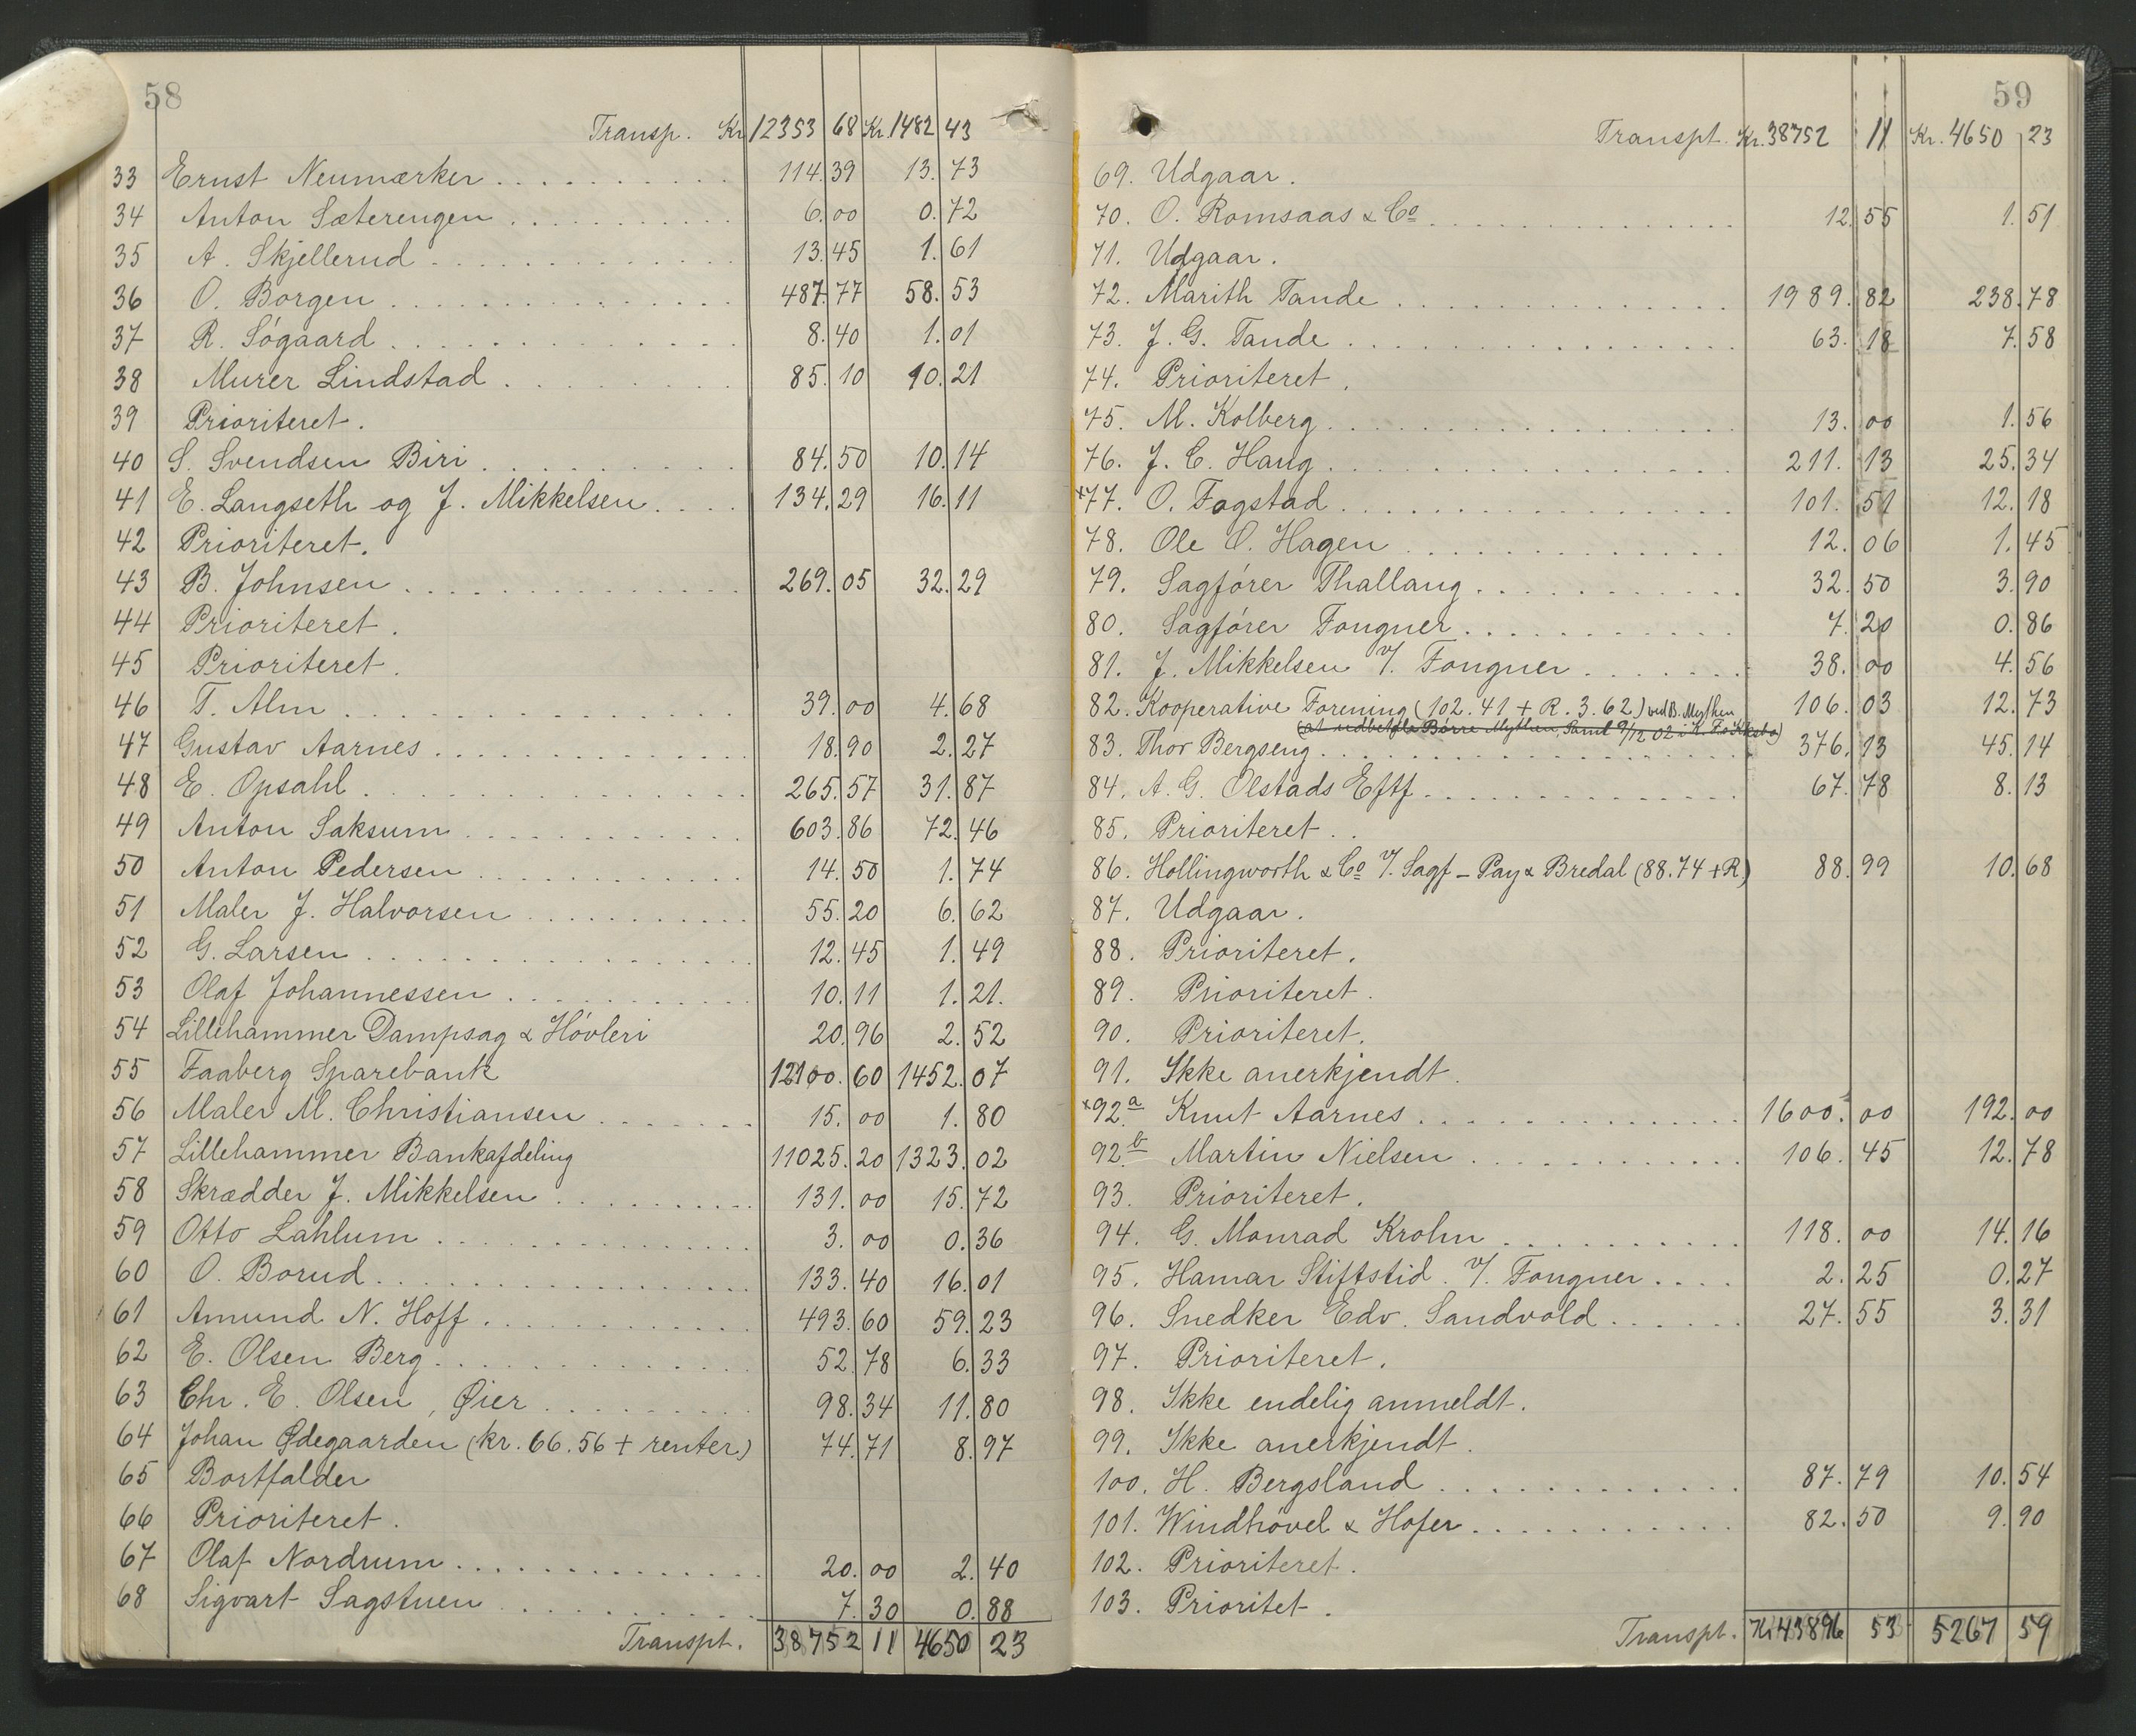 58
Transp. Kr 12353 68 Kr. 1482 43
33 Ernst Neumærker . . . 114.39 13.73
34 Anton Sæterengen . . . 6.00 0.72
35 A. Skjellerud . . . 13.45 1.61
36 O. Borgen . . . 487.77 58.53
37 R. Søgaard . . . 8.40 1.01
38 Murer Lindstad . . . 85.10 10.21
39 Prioriteret.
40 S. Svendsen Biri . . . 84.50 10.14
41 E. Langseth og J. Mikkelsen . . . 134.29 16.11
42 Prioriteret.
43 B. Johnsen . . . 269.05 32.29
44 Prioriteret.
45 Prioriteret.
46 T. Alm . . . 39.00 4.68
47 Gustav Aarnes . . . 18.90 2.27
48 E. Opsahl . . . 265.57 31.87
49 Anton Saksum . . . 603.86 72.46
50 Anton Pedersen . . . 14.50 1.74
51 Maler J. Halvorsen . . . 55.20 6.62
52 G. Larsen . . . 12.45 1.49
53 Olaf Johannessen . . . 10.11 1.21.
54 Lillehammer Dampsag & Høvleri 20.96 2.52
55 Faaberg Sparebank 12100.60 1452.07
56 Maler M. Christiansen . . . 15.00 1.80
57 Lillehammer Bankafdeling 11025.20 1323.02
58 Skrædder J. Mikkelsen . . . 131.00 15.72
59 Otto Lahlum . . . 3.00 0.36
60 O. Borud . . . 133.40 16.01
61 Amund N. Hoff . . . 493.60 59.23
62 E. Olsen Berg . . . 52.78 6.33
63 Chr. E. Olsen, Øier . . . 98.34 11.80
64 Johan Ødegaarden (kr. 66.56 + renter) 74.71 8.97
65 Bortfalder
66 Prioriteret.
67 Olaf Nordrum . . . 20.00 2.40
68 Sigvart Sagstuen . . . 7.30 0.88
Transpt. 38752 11 4650 23
59
Transpt. Kr. 38752 11 Kr. 4650 23
69. Udgaar.
70. O. Romsaas & Co . . . 12.55 1.51
71. Udgaar.
72. Marith Tande . . . 1989.82 238.78
73. J. G. Tande . . . 63.18 7.58
74. Prioriteret.
75. M. Kolberg . . . 13.00 1.56
76. J. C. Haug . . . 211.13 25.34
x77. O. Fagstad . . . 101.51 12.18
78. Ole O. Hagen . . . 12.06 1.45
79. Sagfører Thallaug . . . 32.50 3.90
80. Sagfører Fougner . . . 7.20 0.86
81. J. Mikkelsen v/. Fougner . . . 38.00 4.56
82. Kooperative Forening (102.41 + R. 3.62) ved B. Mythen 106.03 12.73
(at udbetale Børre Mythen, Saml 9/12 02
83. Thor Bergseng . . . 376.13 45.14
84. A. G. Olstads Eftf . . . 67.78 8.13
85. Prioriteret. .
86. Hollingworth & Co v/. Sagf - Pay & Bredal (88.74 + R) 88.99 10.68
87. Udgaar.
88. Prioriteret.
89. Prioriteret.
90. Prioriteret.
91. Ikke anerkjendt.
x92.a Knut Aarnes . . . 1600.00 192.00
92.b Martin Nielsen . . . 106.45 12.78
93. Prioriteret.
94. G. Monrad Krohn . . . 118.00 14.16
95. Hamar Stiftstid. v/. Fougner . . . 2.25 0.27
96. Snedker Edv. Sandvold . . . 27.55 3.31
97. Prioriteret.
98. Ikke endelig anmeldt.
99. Ikke anerkjendt.
100. H. Bergsland . . . 87.79 10.54
101. Windhövel & Hofer . . . 82.50 9.90
102. Prioriteret.
103. Prioritet.
Transpt. Kr 43896 53 5267 59